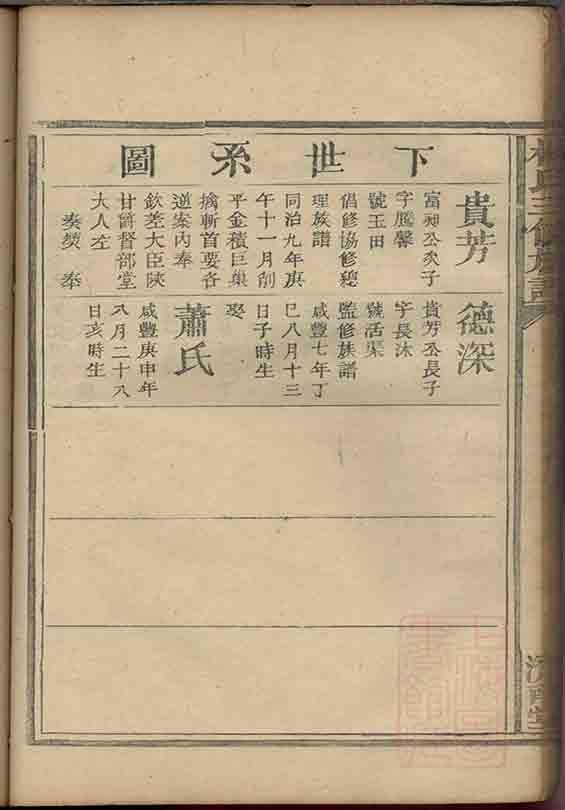 下世系圖
貴芳
富和公次子
字騰馨
號玉田
倡修協修總
理族譜
同治九年庚
午十一月削
平金積巨巢
擒斬首要各
逆案內奉
欽差大臣陝
甘爵督部堂
大人左
奏奬 奉
德深
貴芳公長子
字長沐
號活渠
監修族譜
咸豐七年丁
巳八月十三
日子時生
娶
蕭氏
咸豐庚申年
八月二十八
日亥時生